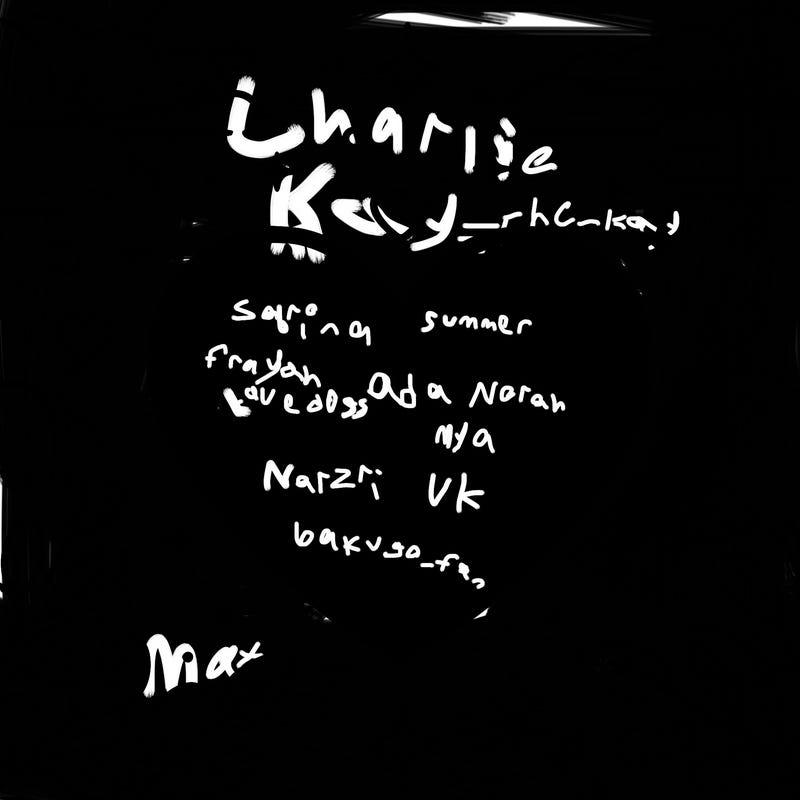 Charlie
Kay_rhc_kay
sarina summer
frayah
Lovedogs Ada Norah
mya
Narzri VK
bakugo_fan
Max